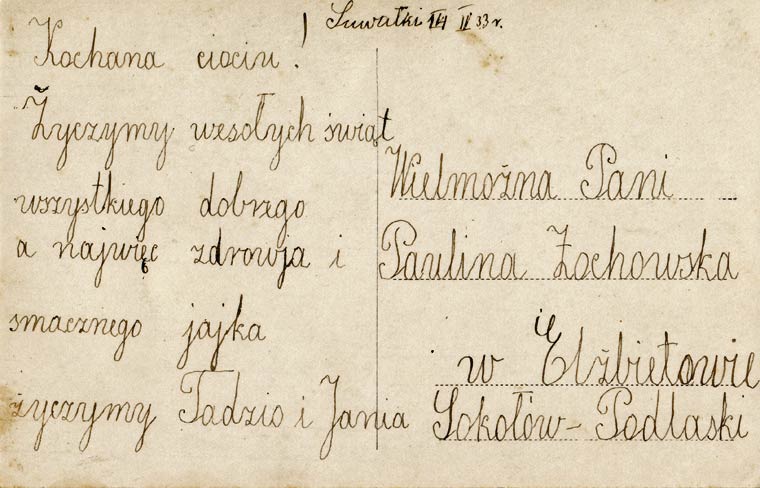 Suwałki 14 II 33 r.
Kochana ciociu!
Życzymy wesołych świąt
wszystkiego dobrego
a najwięc zdrowja i
smacznego jajka
życzymy Tadzio i Jania
Wielmożna Pani
Paulina Żochowska
w Elżbietowie
Sokołów-Podlaski